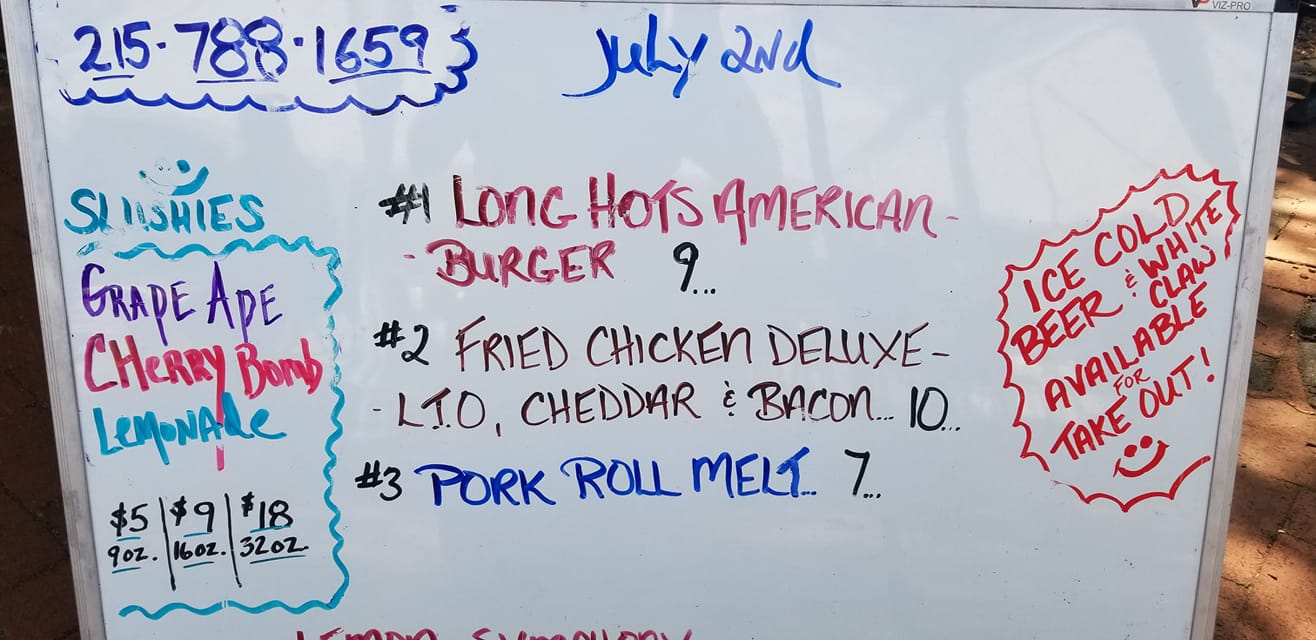 VIZ-PRO
215-788-1659
July 2nd
SLUSHIES
GRAPE APE
CHERRY BOMB
LEMONADE
$5 | $9 | $18
9oz. | 16oz. | 32oz.
#1 LONG HOTS AMERICAN-
- BURGER 9...
#2 FRIED CHICKEN DELUXE-
- L.T.O, CHEDDAR & BACON... 10...
#3 PORK ROLL MELT... 7...
ICE COLD
BEER & WHITE
CLAW
AVAILABLE
FOR
TAKE OUT!
LEMON SYMPHONY